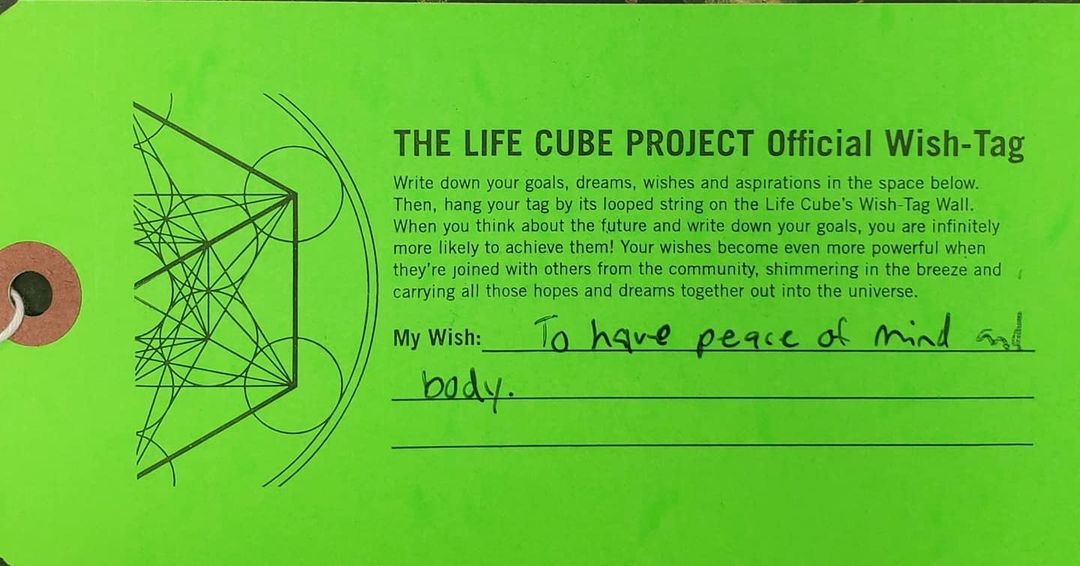 THE LIFE CUBE PROJECT Official Wish-Tag
Write down your goals, dreams, wishes and aspirations in the space below.
Then, hang your tag by its looped string on the Life Cube's Wish-Tag Wall.
When you think about the future and write down your goals, you are infinitely
more likely to achieve them! Your wishes become even more powerful when
they're joined with others from the community, shimmering in the breeze and
carrying all those hopes and dreams together out into the universe.
My Wish: To have peace of mind and
body.